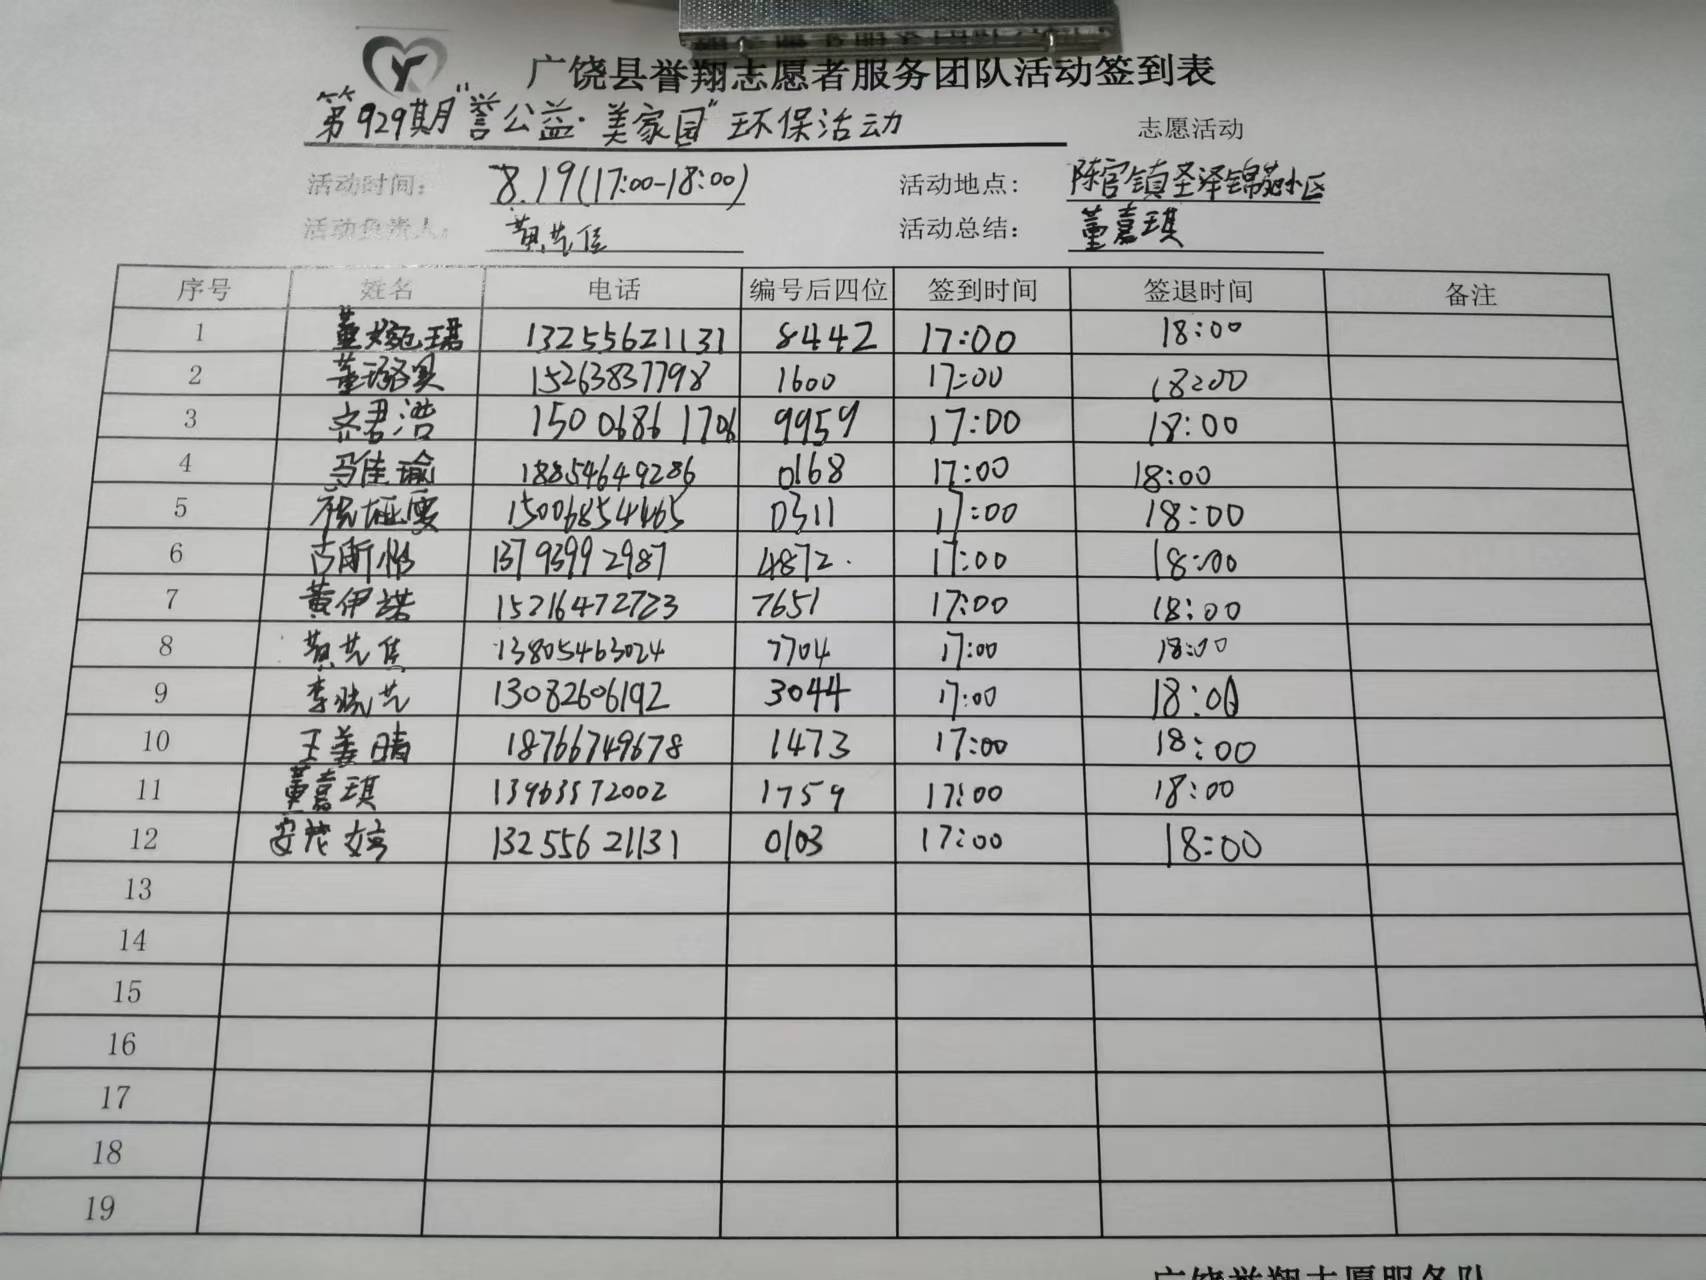 广饶县誉翔志愿者服务团队活动签到表
第929期"誉公益·美家园"环保活动 志愿活动
活动时间: 8.19(17:00-18:00) 活动地点: 陈官镇圣泽锦苑小区
活动负责人: 黄艺佳 活动总结: 董嘉琪
序号 姓名 电话 编号后四位 签到时间 签退时间 备注
1 董婉琪 13255621131 8442 17:00 18:00
2 15263837798 1600 17:00 18:00
3 齐君浩 15006861706 9959 17:00 18:00
4 马佳瑜 18854649286 0168 17:00 18:00
5 15006854465 0311 17:00 18:00
6 13793992987 4872. 17:00 18:00
7 黄伊诺 15216472723 7651 17:00 18:00
8 黄艺佳 13805463024 7704 17:00 18:00
9 李晓艺 13082606192 3044 17:00 18:00
10 王姜晴 18766749678 1473 17:00 18:00
11 董嘉琪 13963572002 1759 17:00 18:00
12 安茂婷 13255621131 0103 17:00 18:00
13
14
15
16
17
18
19
广饶誉翔志愿服务队